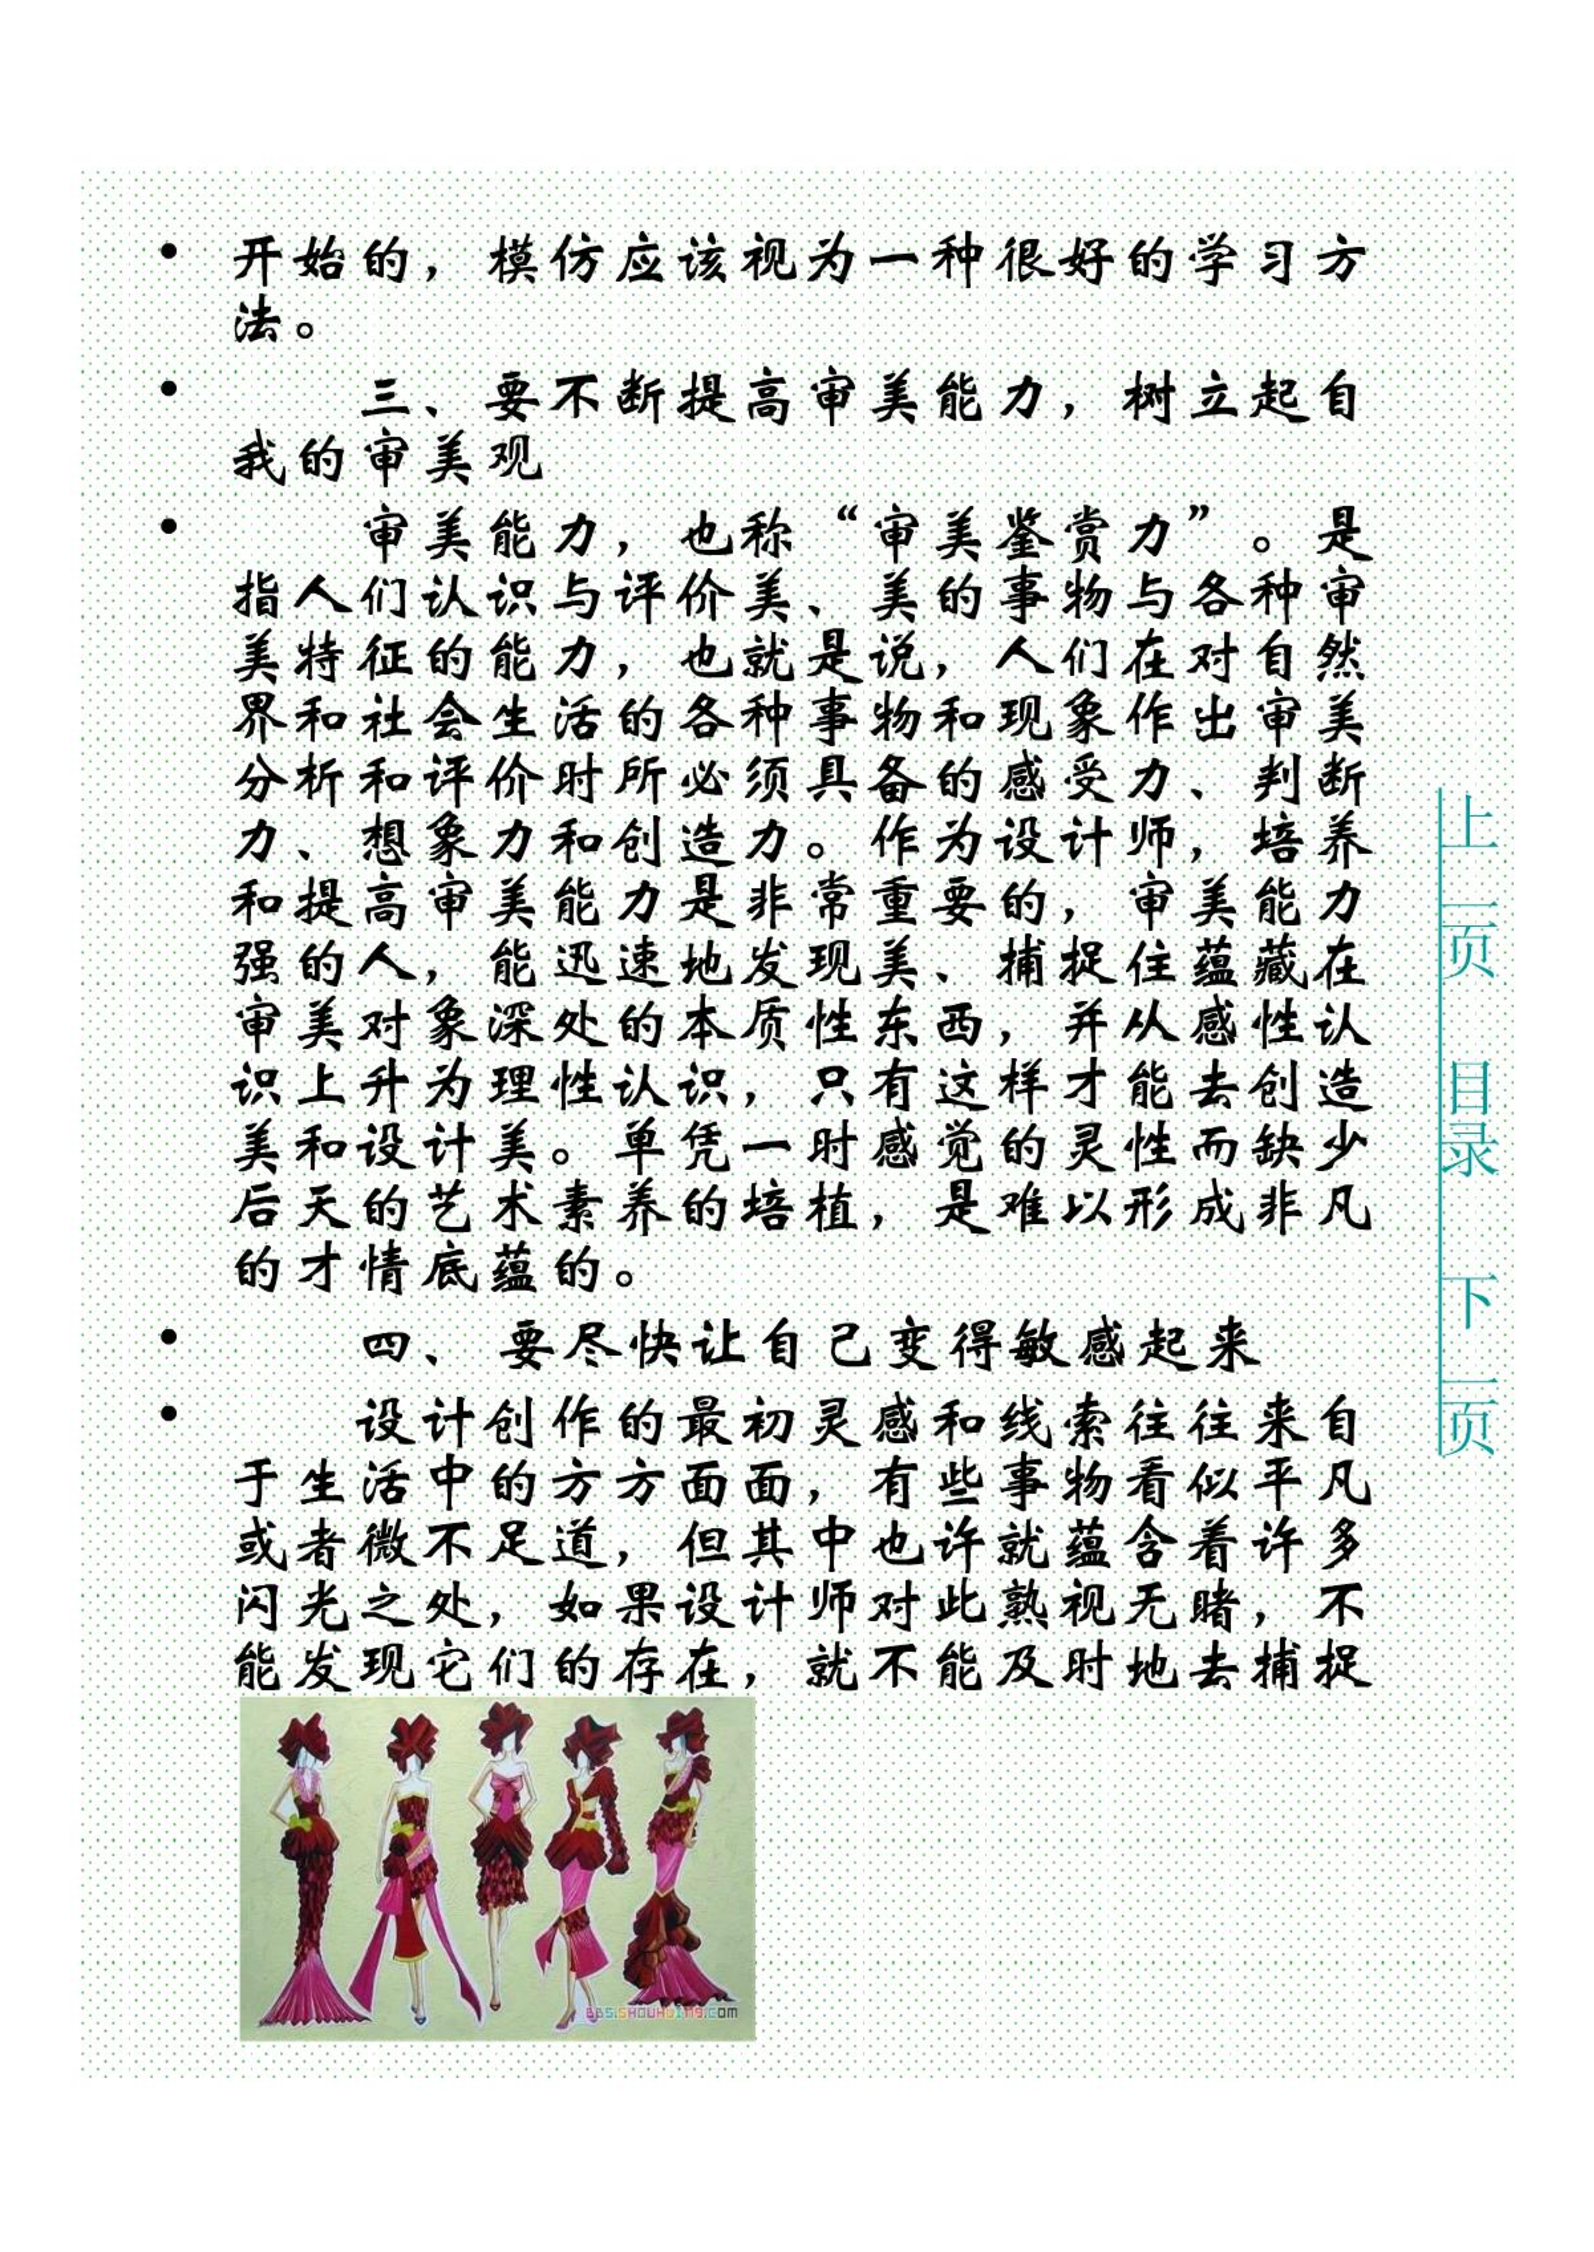 • 开始的，模仿应该视为一种很好的学习方
法。
• 三、要不断提高审美能力，树立起自
我的审美观
• 审美能力，也称“审美鉴赏力”。是
指人们认识与评价美、美的事物与各种审
美特征的能力，也就是说，人们在对自然
界和社会生活的各种事物和现象作出审美
分析和评价时所必须具备的感受力、判断
力、想象力和创造力。作为设计师，培养
和提高审美能力是非常重要的，审美能力
强的人，能迅速地发现美、捕捉住蕴藏在
审美对象深处的本质性东西，并从感性认
识上升为理性认识，只有这样才能去创造
美和设计美。单凭一时感觉的灵性而缺少
后天的艺术素养的培植，是难以形成非凡
的才情底蕴的。
• 四、 要尽快让自己变得敏感起来
• 设计创作的最初灵感和线索往往来自
于生活中的方方面面，有些事物看似平凡
或者微不足道，但其中也许就蕴含着许多
闪光之处，如果设计师对此熟视无睹，不
能发现它们的存在，就不能及时地去捕捉
BBS.SHOUHUI119.COM
上一页
目录
下一页